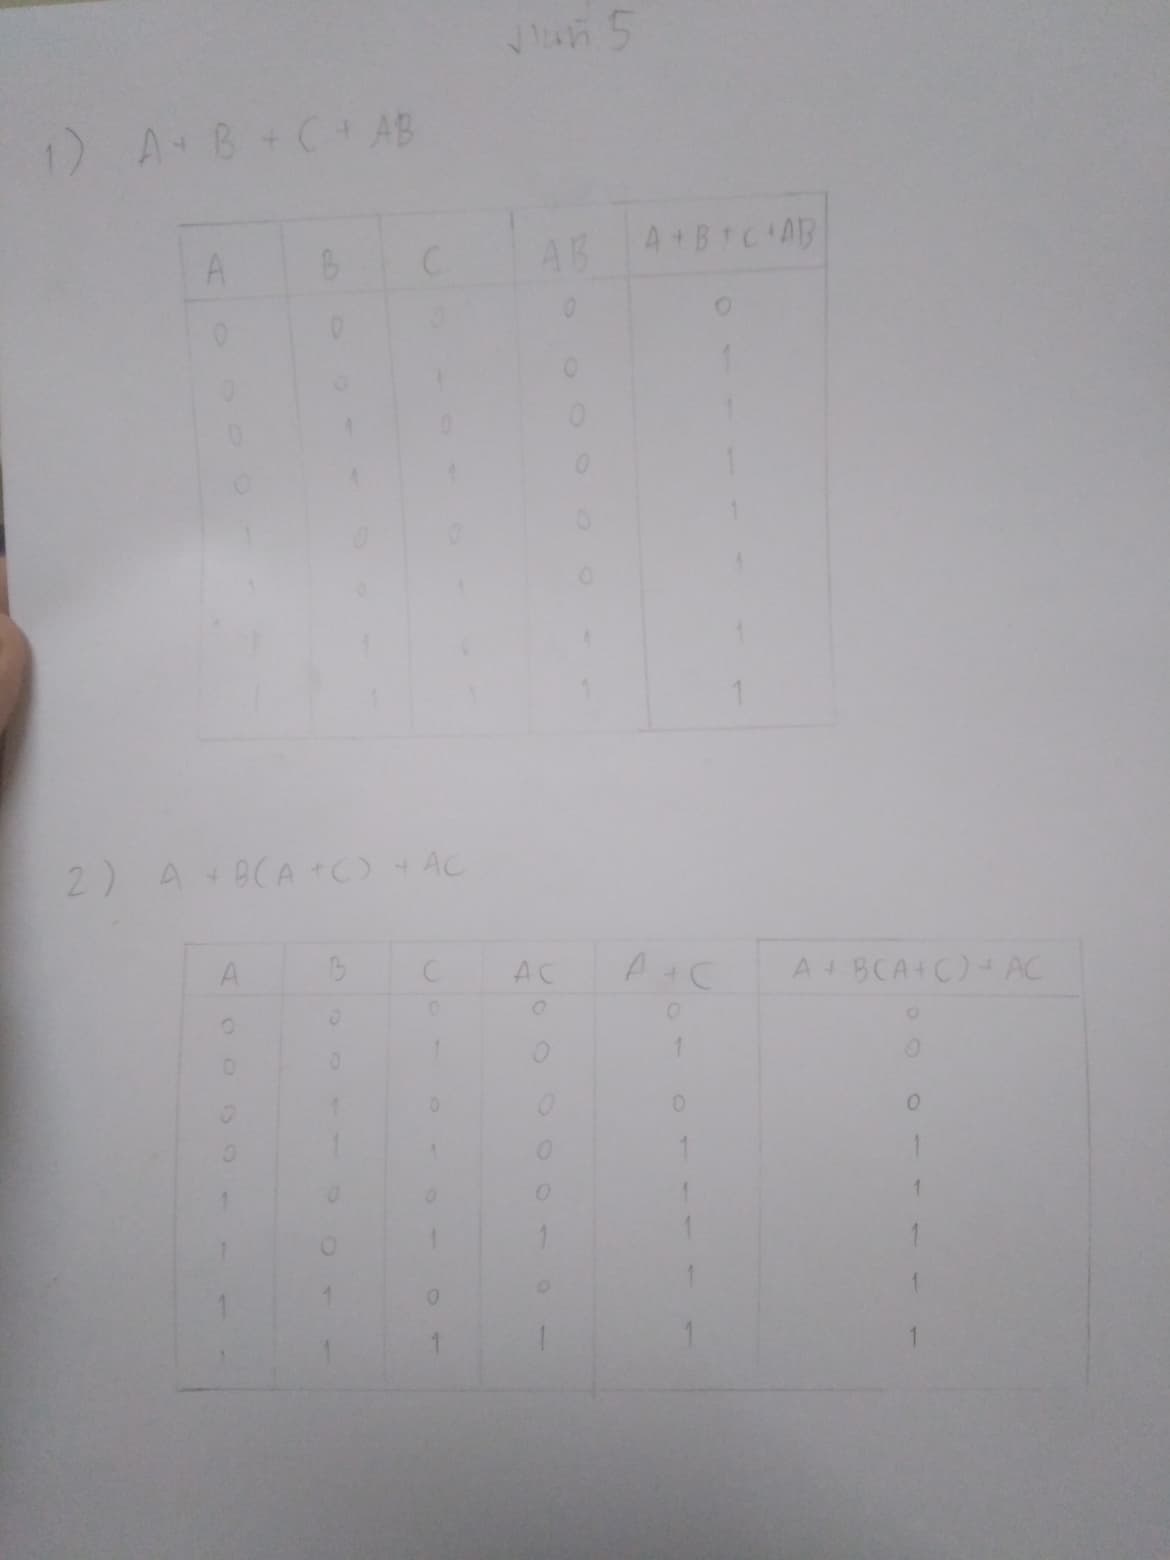 งานที่ 5
1) A + B + C + AB
A B C AB A + B + C + AB
0 0 0 0 0
0 0 1 0 1
0 1 0 0 1
0 1 1 0 1
1 0 0 0 1
1 0 1 0 1
1 1 0 1 1
1 1 1 1 1
2) A + B(A + C) + AC
A B C AC A + C A + B(A + C) + AC
0 0 0 0 0 0
0 0 1 0 1 0
0 1 0 0 0 0
0 1 1 0 1 1
1 0 0 0 1 1
1 0 1 1 1 1
1 1 0 0 1 1
1 1 1 1 1 1